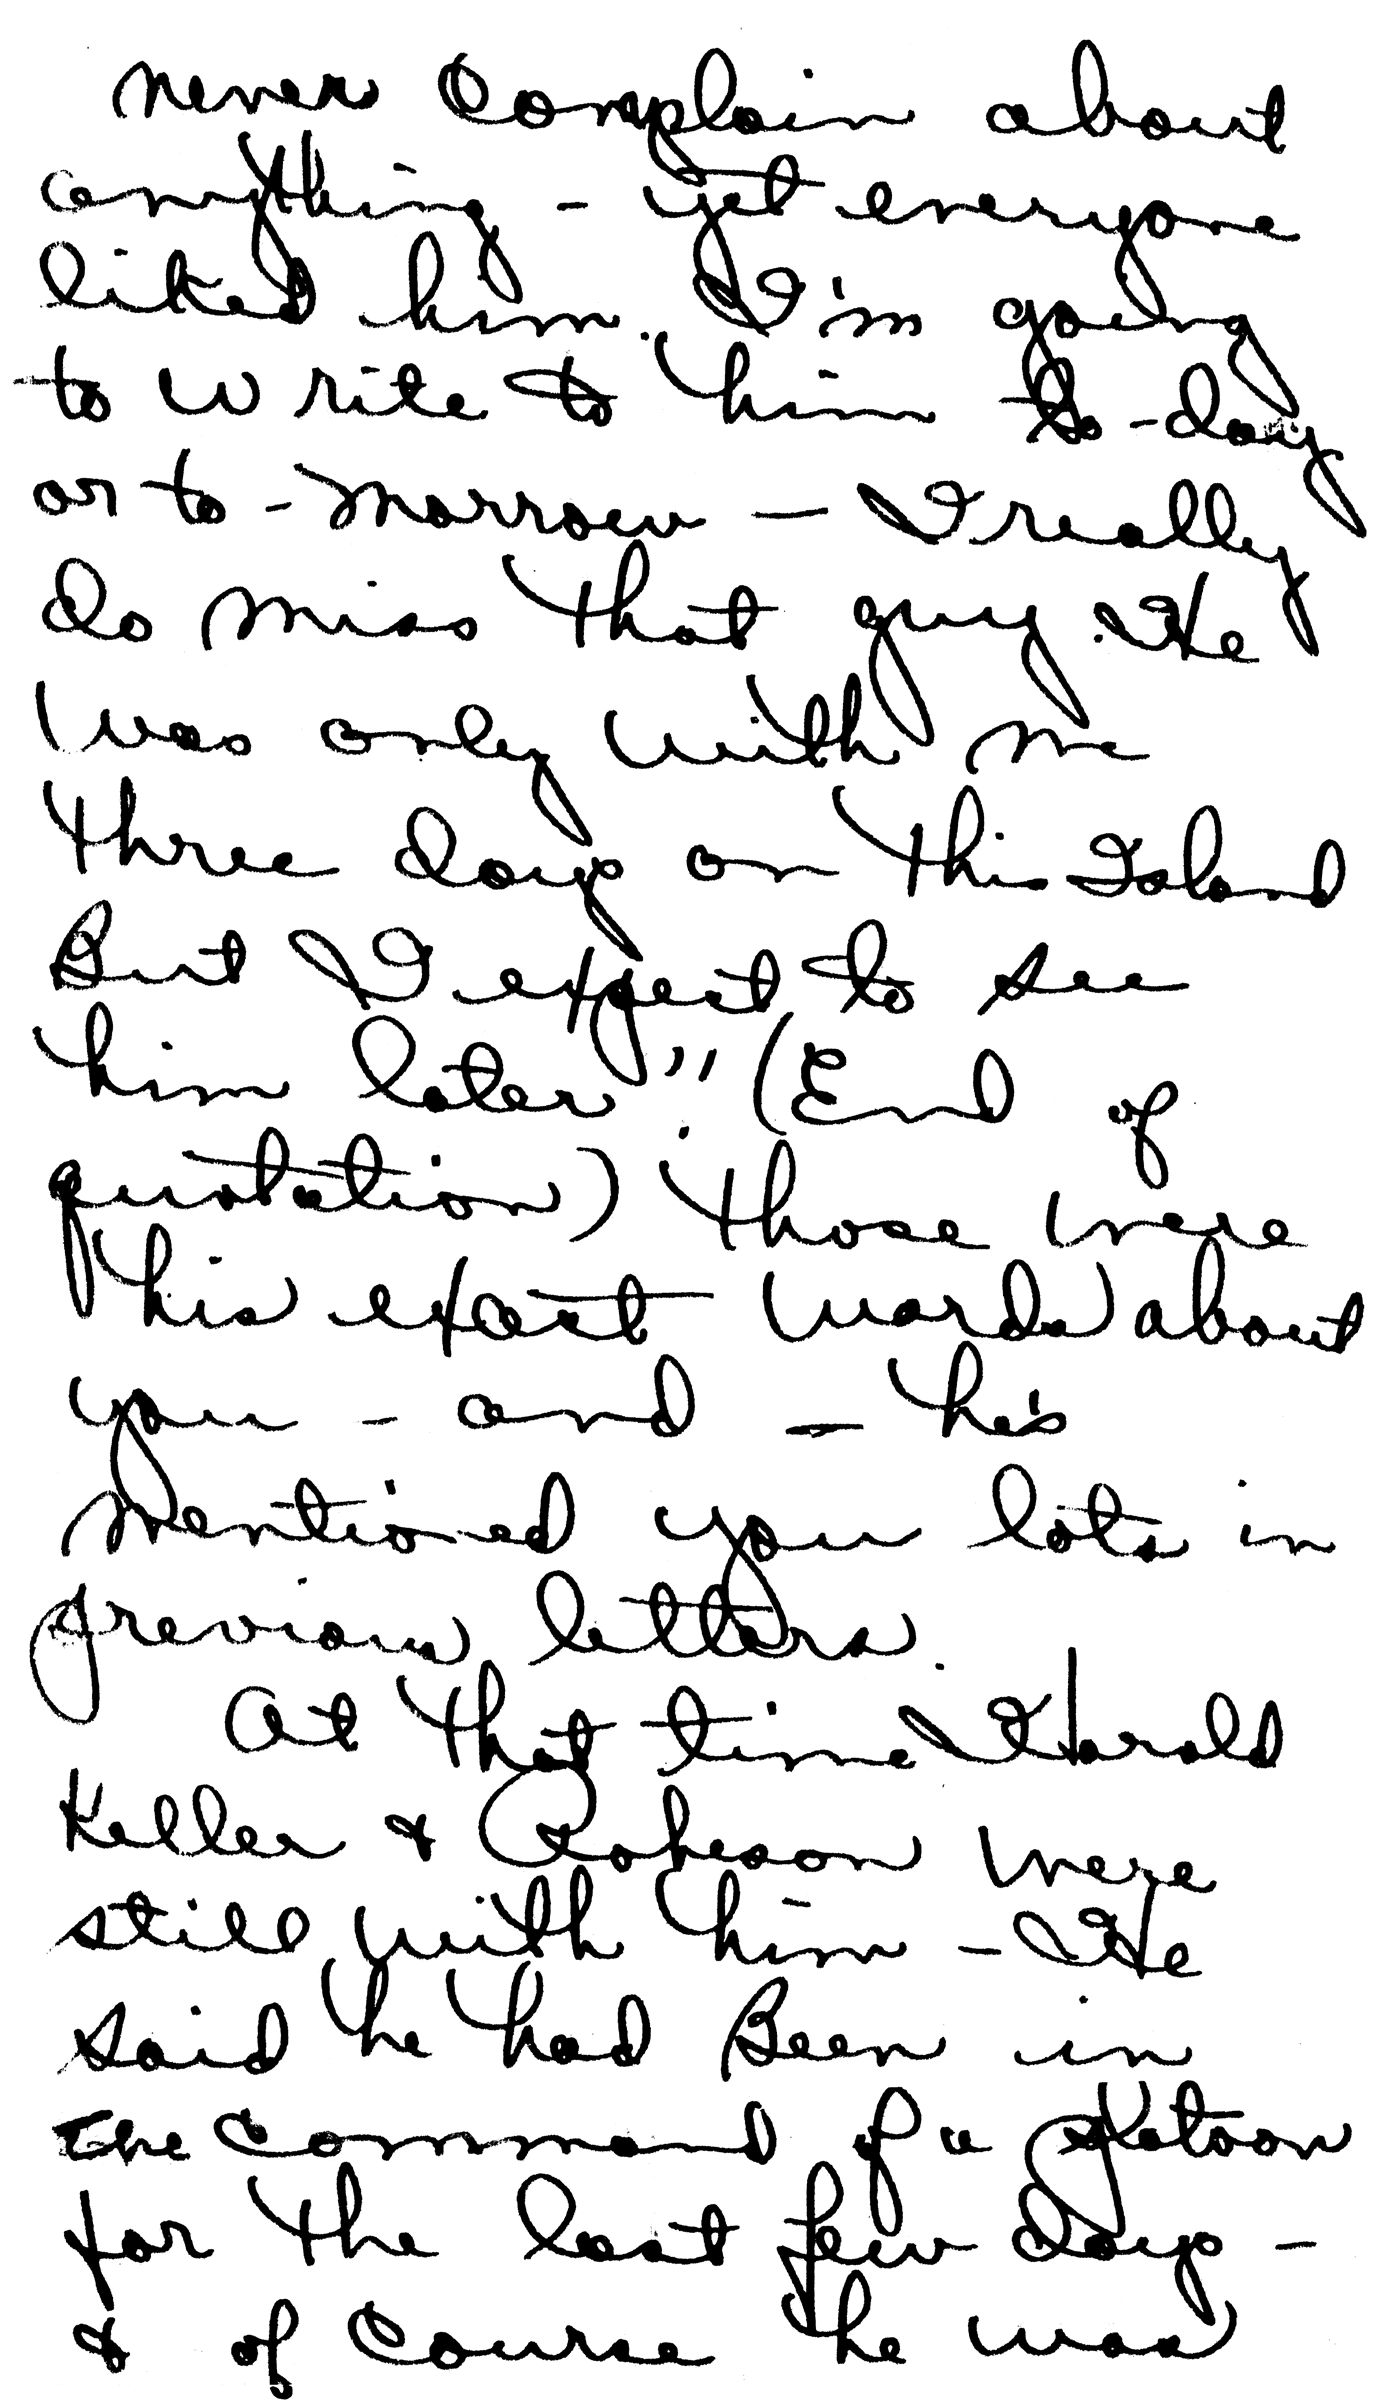 never Complain about
anything - yet everyone
liked him. I'm going
to write to him to-day
or to-morrow - I really
do miss that guy. He
was only with me
three days on this Island
But I expect to see
him later". (End of
quotation) those were
his exact words about
you - and - he's
mentioned you lots in
previous letters.
At that time Harold
Keller & Robeson were
still with him - He
said he had Been in
the Command of a platoon
for the last few days -
& of Course he was